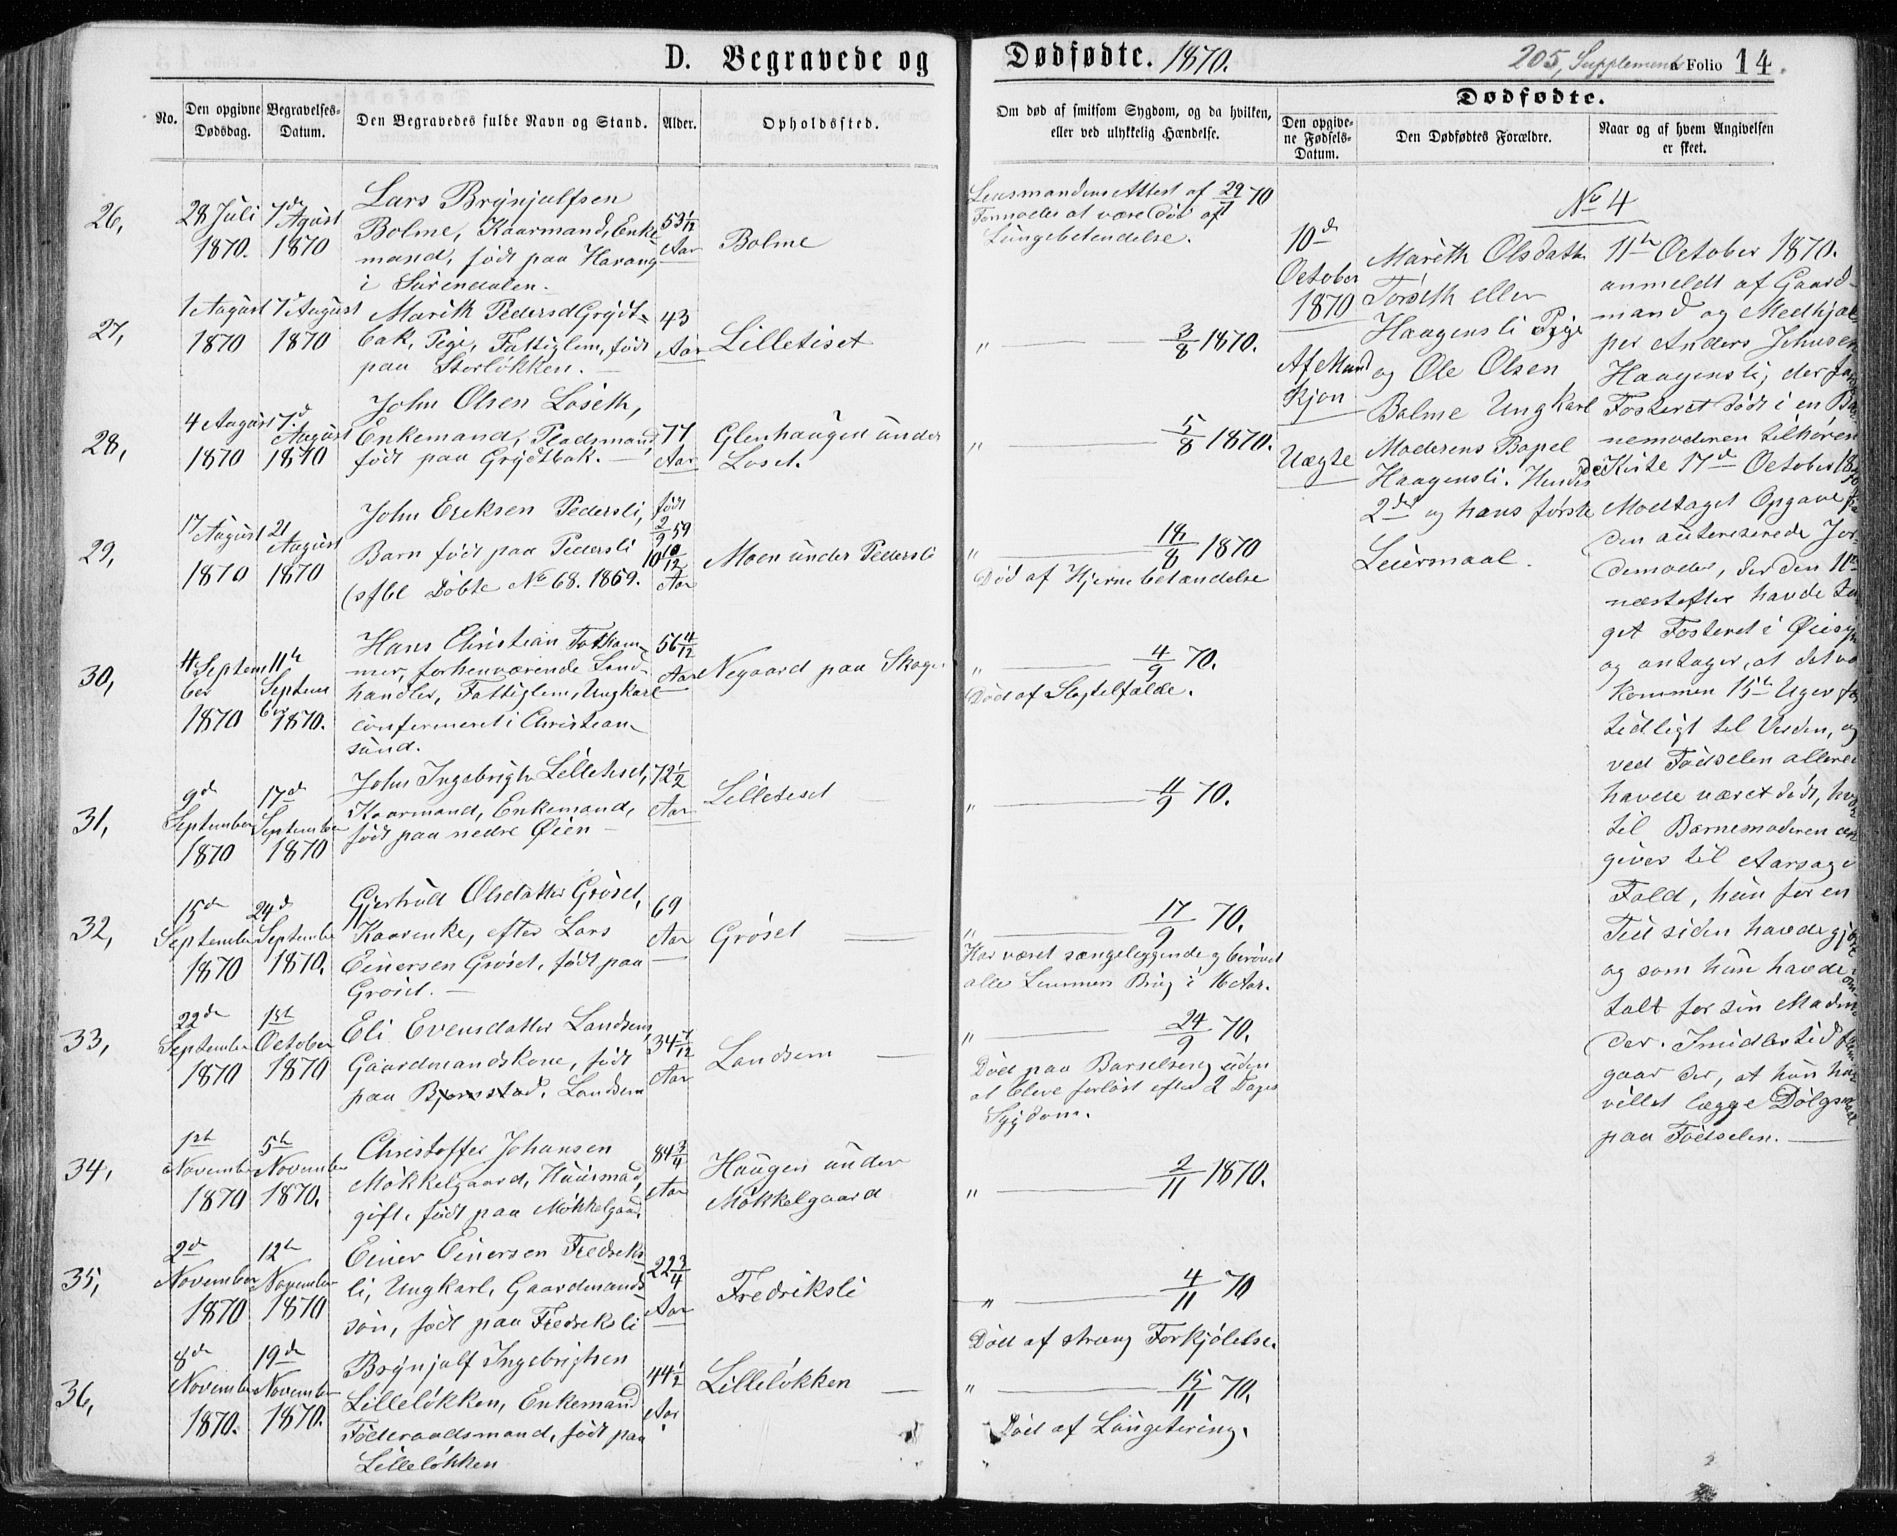 D. Begravede og
Dødfødte. 1870.
205, Supplement a Folio 14.
No.
Den opgivne Dødsdag.
Begravelses-Datum.
Den Begravedes fulde Navn og Stand.
Alder.
Opholdssted.
Om død af smitsom Sygdom, og da hvilken,
eller ved ulykkelig Hændelse.
Dødfødte.
Den opgivne Fødsels-Datum.
Den Dødfødtes Forældre.
Naar og af hvem Angivelsen
er skeet.
26,
28 Juli
1870.
7de Agust
1870
Lars Brynjulfsen
Bolme, Kaarmand, Enke
mand, født paa Harang
i Surendalen.
53 1/12
Aar
Bolme
Lensmandens Attest af 29/7 70
Formodes at være død af
Lungebetendelse.
27,
1 August
1870
7 August
1870
Marith PedersdGrydt-
bak, Pige, Fattiglem, født
paa Storløkken. —
43
Aar
Lilletiset
" — 3/8 1870.
28,
4 August
1870
7d August
1870
John Olsen Løseth,
Enkemand, Pladsmand,
født paa Grydtbak. —
77
Aar
Glenhaugen under
Løset.
" — 5/8 1870.
29,
17 August
1870
21 August
1870
John Eriksen Pedersli,
Barn født paa Pedersli
(sfbl Døbte No 68. 1859.
født
2/9 59
10 10/12
Aar
Moen under Pedersli
" — 18/8 1870
Død af Hjernebetændelse
30,
4 Septem
ber
1870
11te
Septem
ber 1870.
Hans Christian
mer, forhenværende Land-
handler, Fattiglem, Ungkarl
confirmeret i Christian
sund.
56 4/12
Aar
Negaard paa Skoge
" — 4/9 70.
Død af Slagtilfælde.
31,
9de
September
1870
17de
September
1870
John Ingebrigts Lilletiset,
Kaarmand, Enkemand,
født paa nedre Øien —
72 1/2
Aar
Lilletiset —
" — 11/9 70.
32,
15de
September
1870
24de
September
1870.
Gjertrud Olsdatter Grøset,
Kaarenke, efter Lars
Einersen Grøset, født paa
Grøset. —
69
Aar
Grøset —
" — 17/9 70.
Har været sængeliggende og berøvet
alle Lemmers Brug i 16 Aar.
33,
22de
September
1870
1ste
October
1870
Eli Evensdatter Landsem,
Gaardmandskone, født
paa Bjørnstad. Landsem
34 7/12
Aar
Landsem —
" — 24/9 70.
Død paa Barselseng uden
at blive forløst efter 2 Dages
Sygdom.
34,
1ste
November
1870
5te
November
1870.
Christoffer Johansen
Møkkelgaard, Huusmand,
gift, født paa Møkkelgaard.
84 3/4
Aar
Haugen under
Møkkelgaard
" — 2/11 1870.
35,
2de
November
1870
12te
November
1870
Einer Einersen Fredriks
li, Ungkarl, Gaardmands
søn, født paa Fredriksli
22 3/4
Aar
Fredriksli
" — 4/11 70
Død af stræng Forkjølelse.
36,
8de
November
1870.
19de
November
1870.
Brynjulf Ingebrigtsen
Lilleløkken, Enkemand
Føderaadsmand, født paa
Lilleløkken
44 1/2
Aar.
Lilleløkken —
" — 15/11 70.
Død af Lungetæring.
No 4
10de
October
1870
Af Mand
kjøn
Uægte
Marith Olsdatt
Torseth eller
Haagensli Pige
og Ole Olsen
Bolme Ungkarl
Moderens Bopel
Haagensli. Hendes
2det og hans første
Leiermaal.
11te October 1870.
anmeldt af Gaard-
mand og Medhjæl-
per Anders Johnsen
Haagensli, der
Fosteret dødt i en
nemoderen tilhøren
Kiste 17de October 18
Modtaget Opgave
den autoriserede Jor
demoder, der den 11te
næstefter havde ta
get Fosteret i
og antager, at det
kommen 15te Uger
tidligt til Verden, og
ved Fødselen allere
havde været dødt,
til Barnemoderen
giver til Aarsag
Fald, hun for en
Tid siden havde
og som hun havde
talt for sin Madm
der. Imidlertid
gaar der, at hun
villet lægge Dølgsmaal
paa Fødselen. —